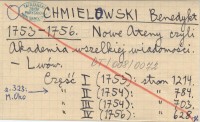 CHMIELOWSKI Benedykt
1753-1756. Nowe Ateny czyli
Akademia wszelkiej wiadomości.
- Lwów.
Część I (1755): stron 1214.
" II (1754): " 784.
" III (1754): " 703.
" IV (1756): " 628.
s. 323: